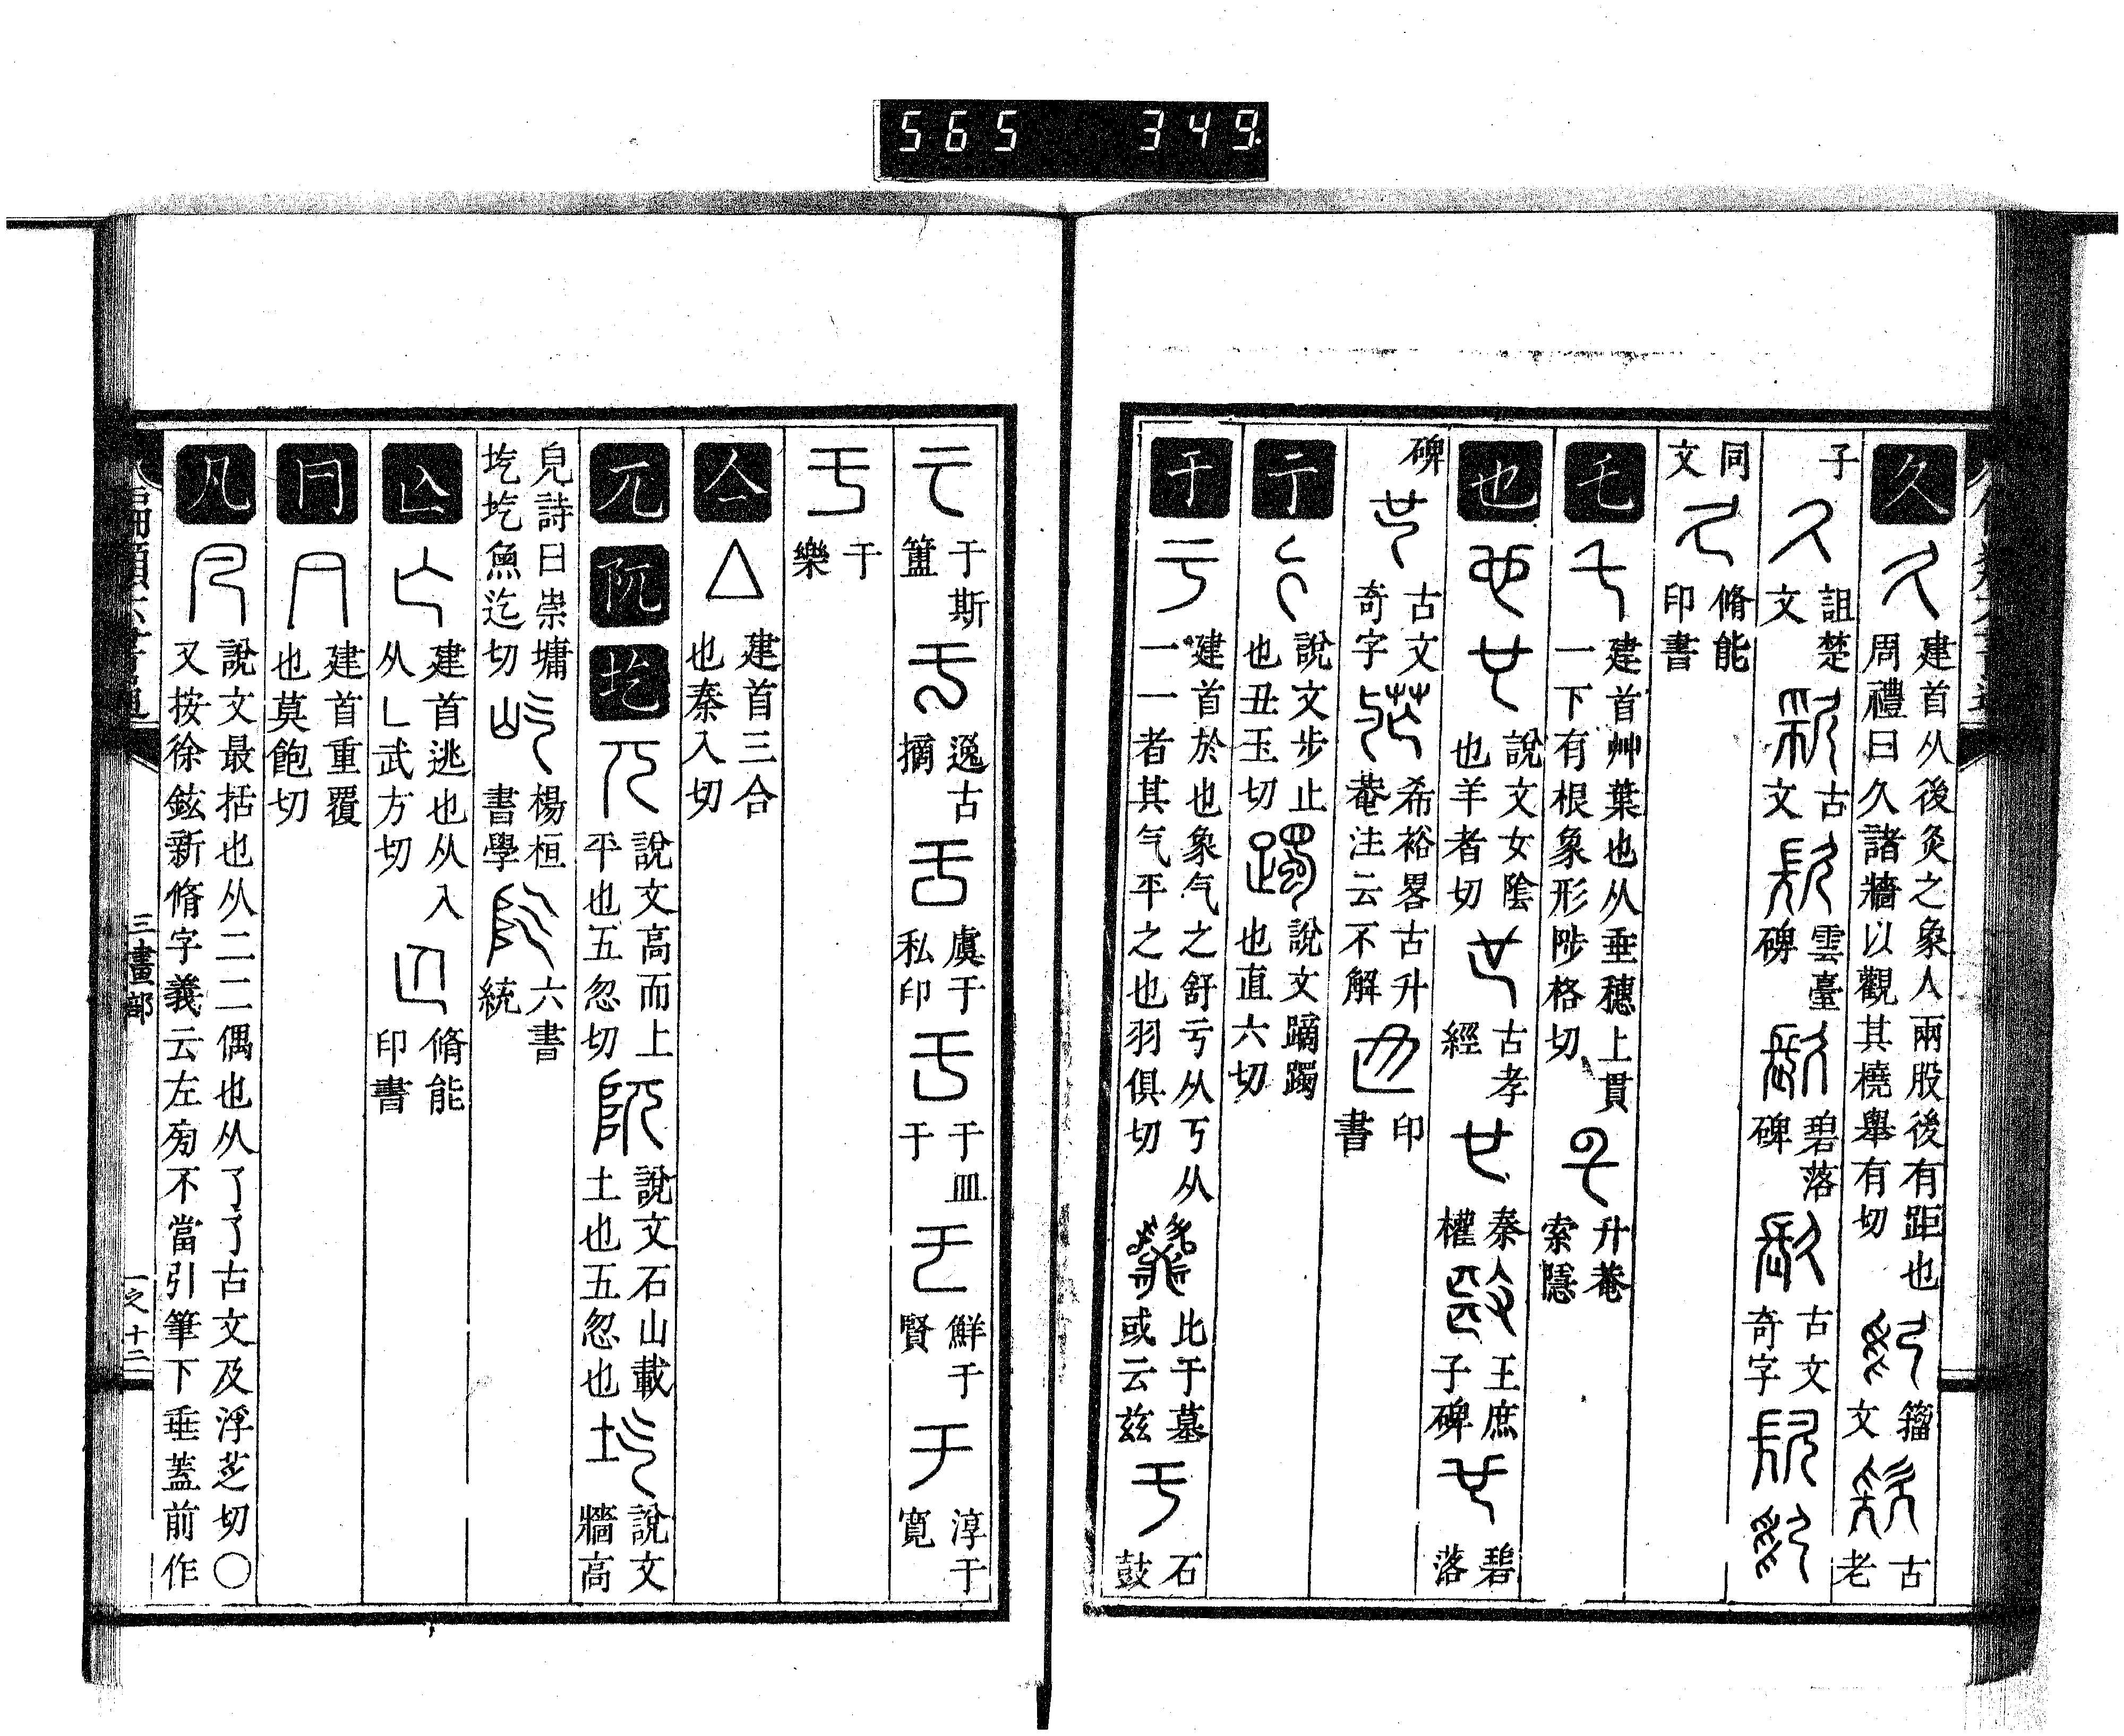 565 349
久 建首从後灸之象人兩股後有距也
周禮曰久諸牆以觀其橈舉有切
籀文
古老
子
詛楚文
古文
雲臺碑
碧落碑
古文奇字
同文
脩能印書
乇 建首艸葉也从垂穗上貫
一下有根象形陟格切
升菴索隱
也 說文女陰也羊者切
古孝經
秦權
王庶子碑
碧落
碑
古文奇字
希裕畧古升菴注云不解
印書
亍 說文步止也丑玉切
說文蹢躅也直六切
于 建首於也象气之舒亏从丂从
一一者其气平之也羽俱切
比干墓或云玆
石鼓
于斯簠
逸古摘
虞于私印
于皿于
鮮于賢
淳于寛
于樂
亼 建首三合也秦入切
兀 阢 圪 說文高而上平也五忽切
說文石山載土也五忽也
說文牆高
皃詩曰崇墉圪圪魚迄切
楊桓書學
六書統
亾 建首逃也从入从乚武方切
脩能印書
冃 建首重覆也莫飽切
凡 說文最括也从二二偶也从了了古文及浮芝切〇
又按徐鉉新脩字義云左旁不當引筆下垂蓋前作
三畫部
一之十二